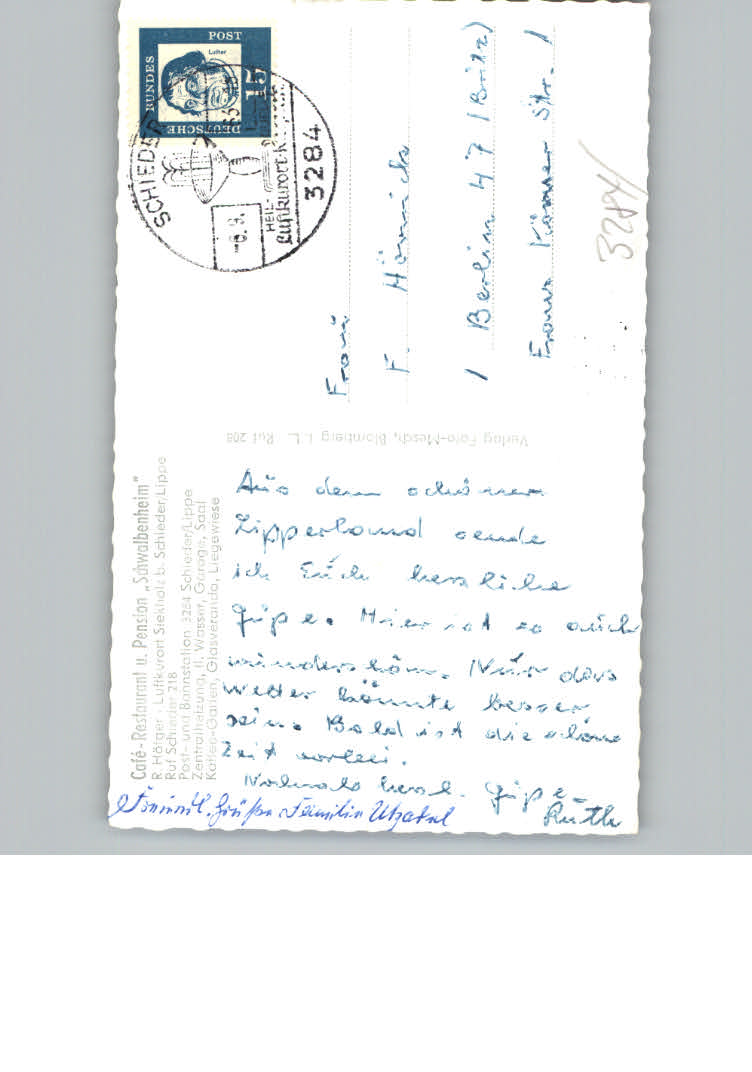 Café-Restaurant u. Pension „Schwalbenheim"
R. Hörger · Luftkurort Siekholz b. Schieder/Lippe
Ruf Schieder 218
Post- und Bahnstation 3284 Schieder/Lippe
Zentralheizung, fl. Wasser, Garage, Saal
Kaffee-Garten, Glasveranda, Liegewiese
Aus dem schönen
Lipperland sende
ich Euch herzliche
Grüße. Hier ist es auch
wunderschön. Nur das
Wetter könnte besser
sein. Bald ist die schöne
Zeit vorbei.
Nochmals herzl. Grüße
Ruth
Grüße Familie
Verlag Foto-Mesch, Blomberg i. L. Ruf 208
DEUTSCHE BUNDES POST
Luther
15
SCHIEDER
-6.9.
HEIL-
Luftkurort
3284
Frau
F.
1 Berlin 47 (Britz)
Franz Körner Str. 1
3284/